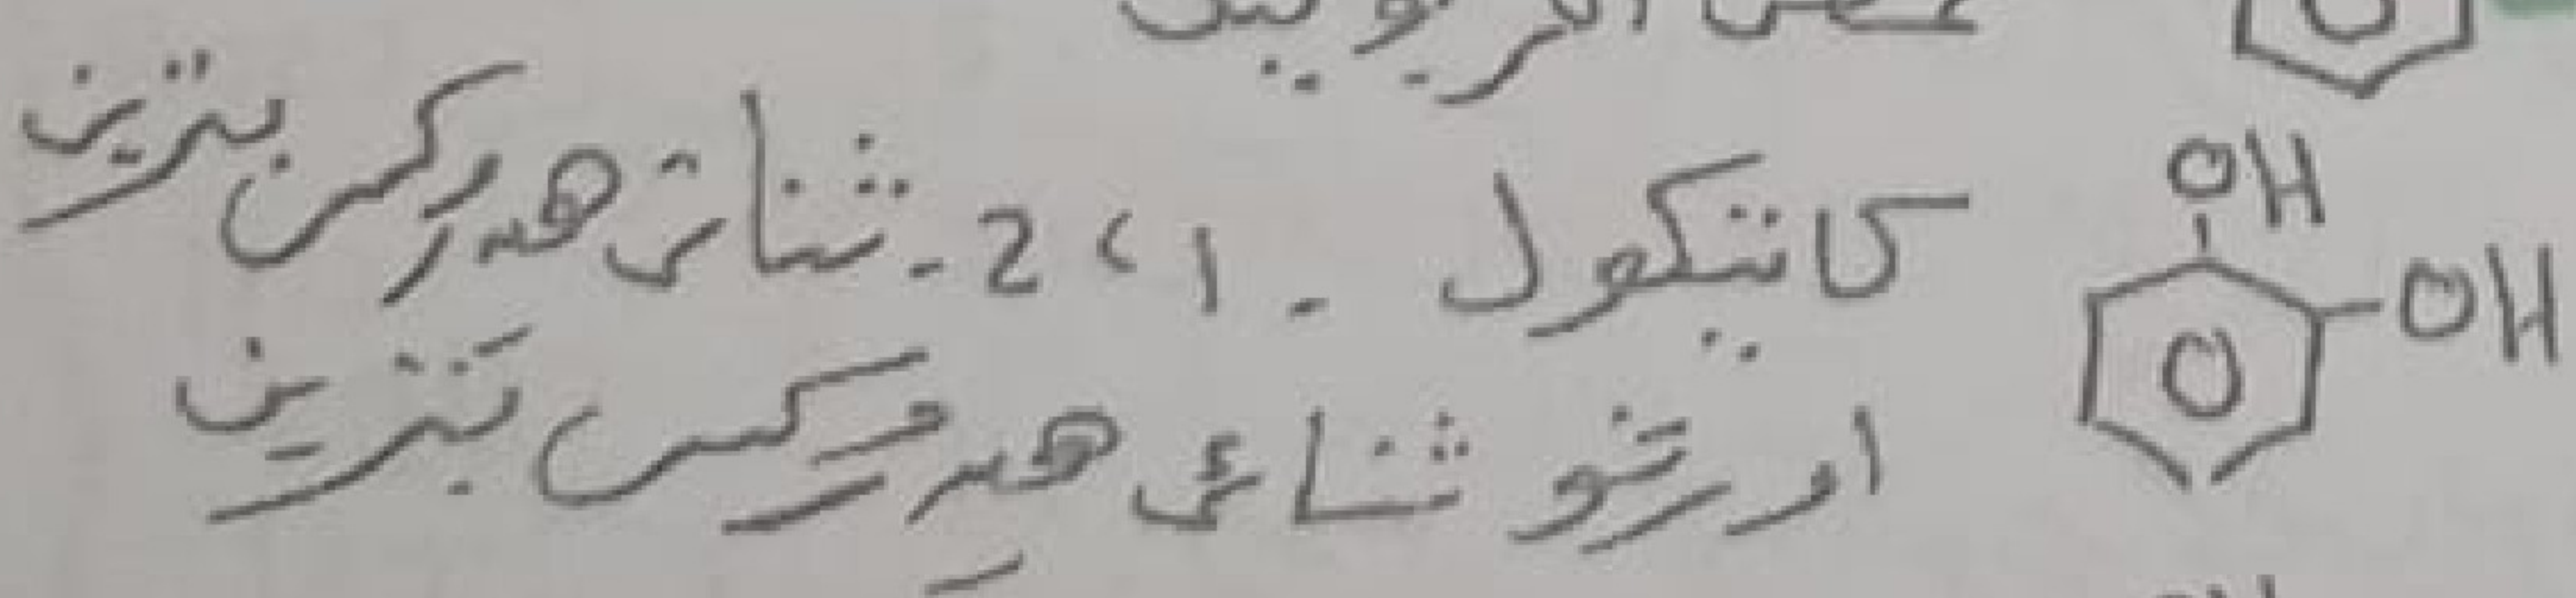 كاتيكول - 1، 2 - ثنائى هيدروكس بنزين
اورثو ثنائى هيدروكس بنزين
OH
OH